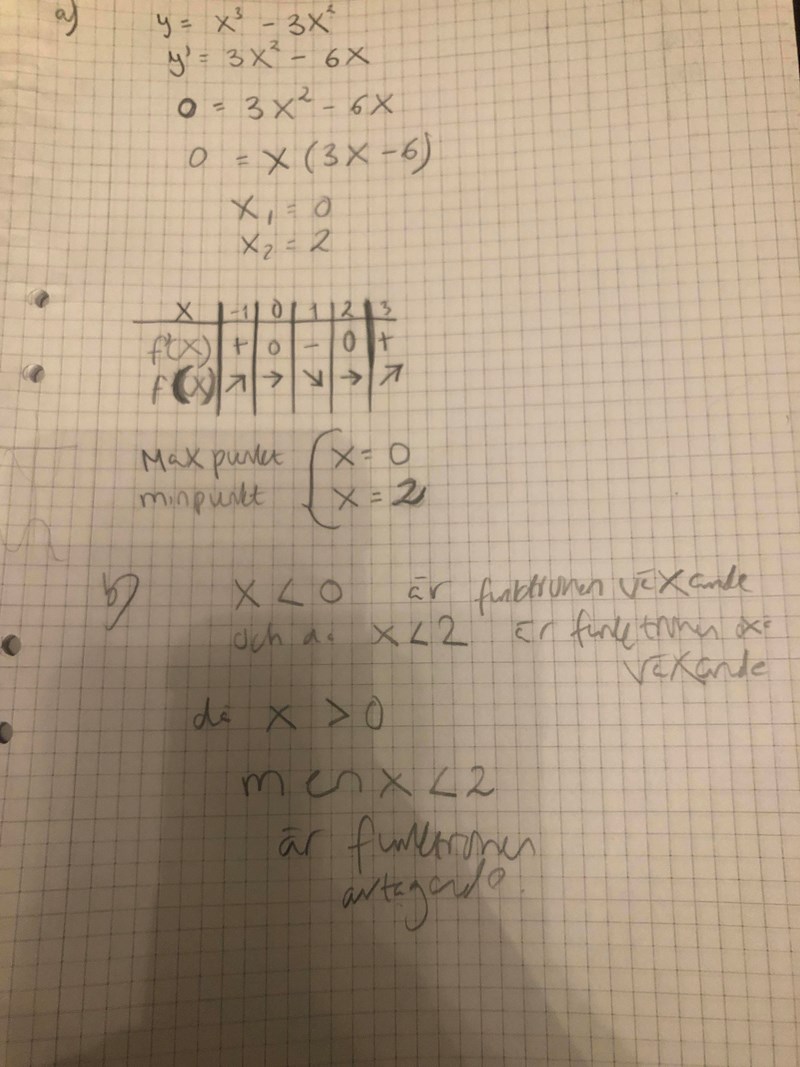 a) y = x³ - 3x²
y' = 3x² - 6x
0 = 3x² - 6x
0 = x (3x - 6)
x₁ = 0
x₂ = 2
x | -1 | 0 | 1 | 2 | 3
f'(x) | + | 0 | - | 0 | +
f(x) | ↗ | → | ↘ | → | ↗
Maxpunkt { x = 0
minpunkt { x = 2
b) x < 0 är funktionen växande
och då x < 2 är funktionen
växande
då x > 0
men x < 2
är funktionen
avtagande.